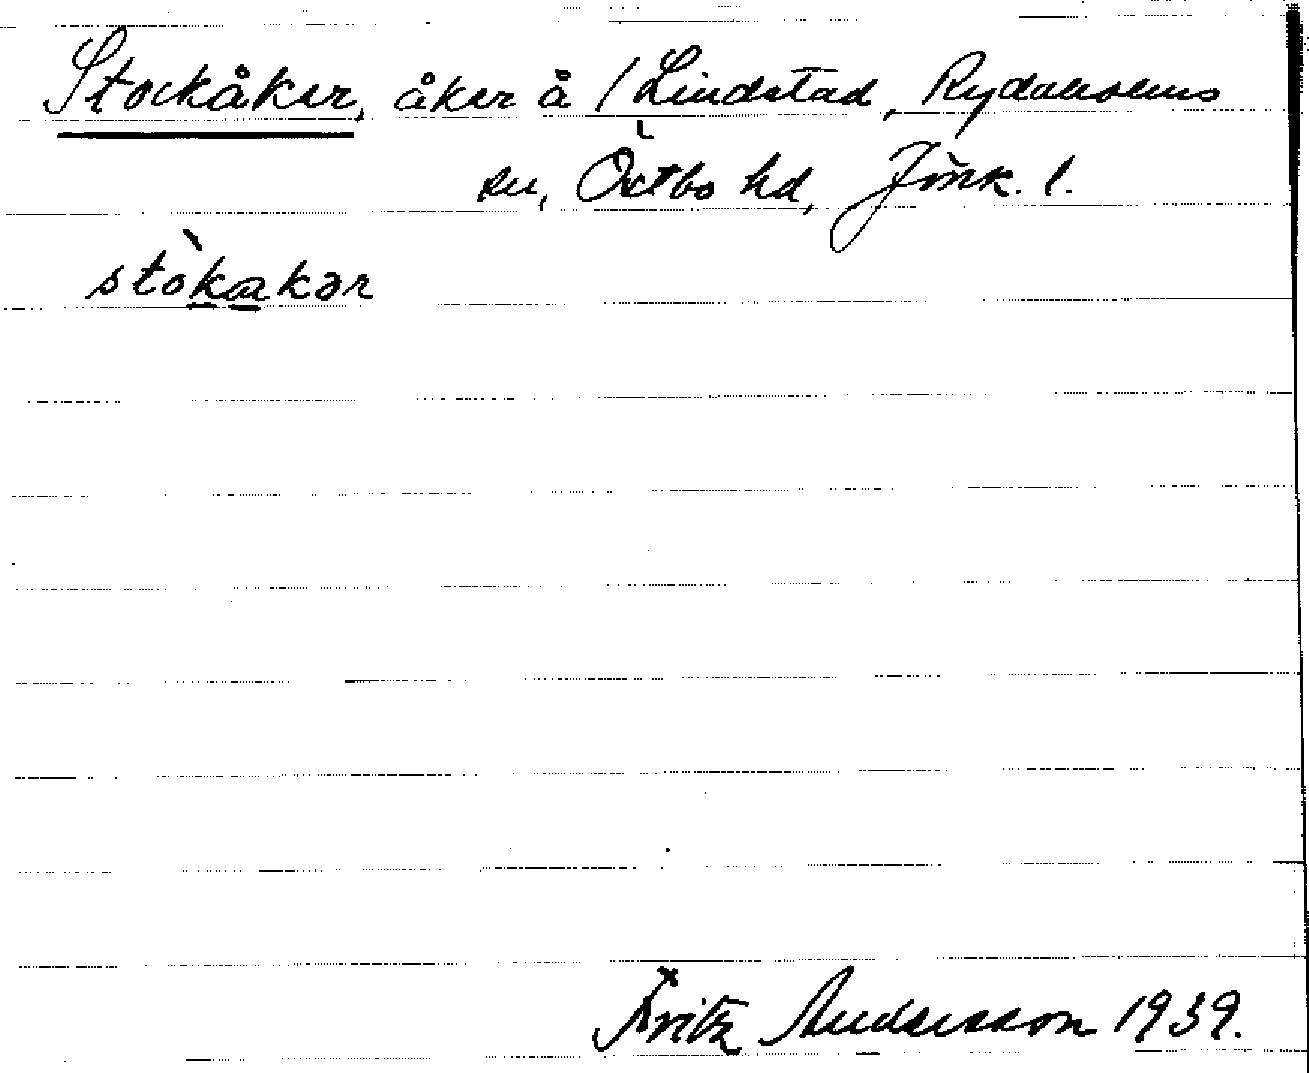 Stockåker, åker å /Lindstad, Rydaholms
sn, Östbo hd, Jönk. l.
stòkakər
Fritz Andersson 1939.